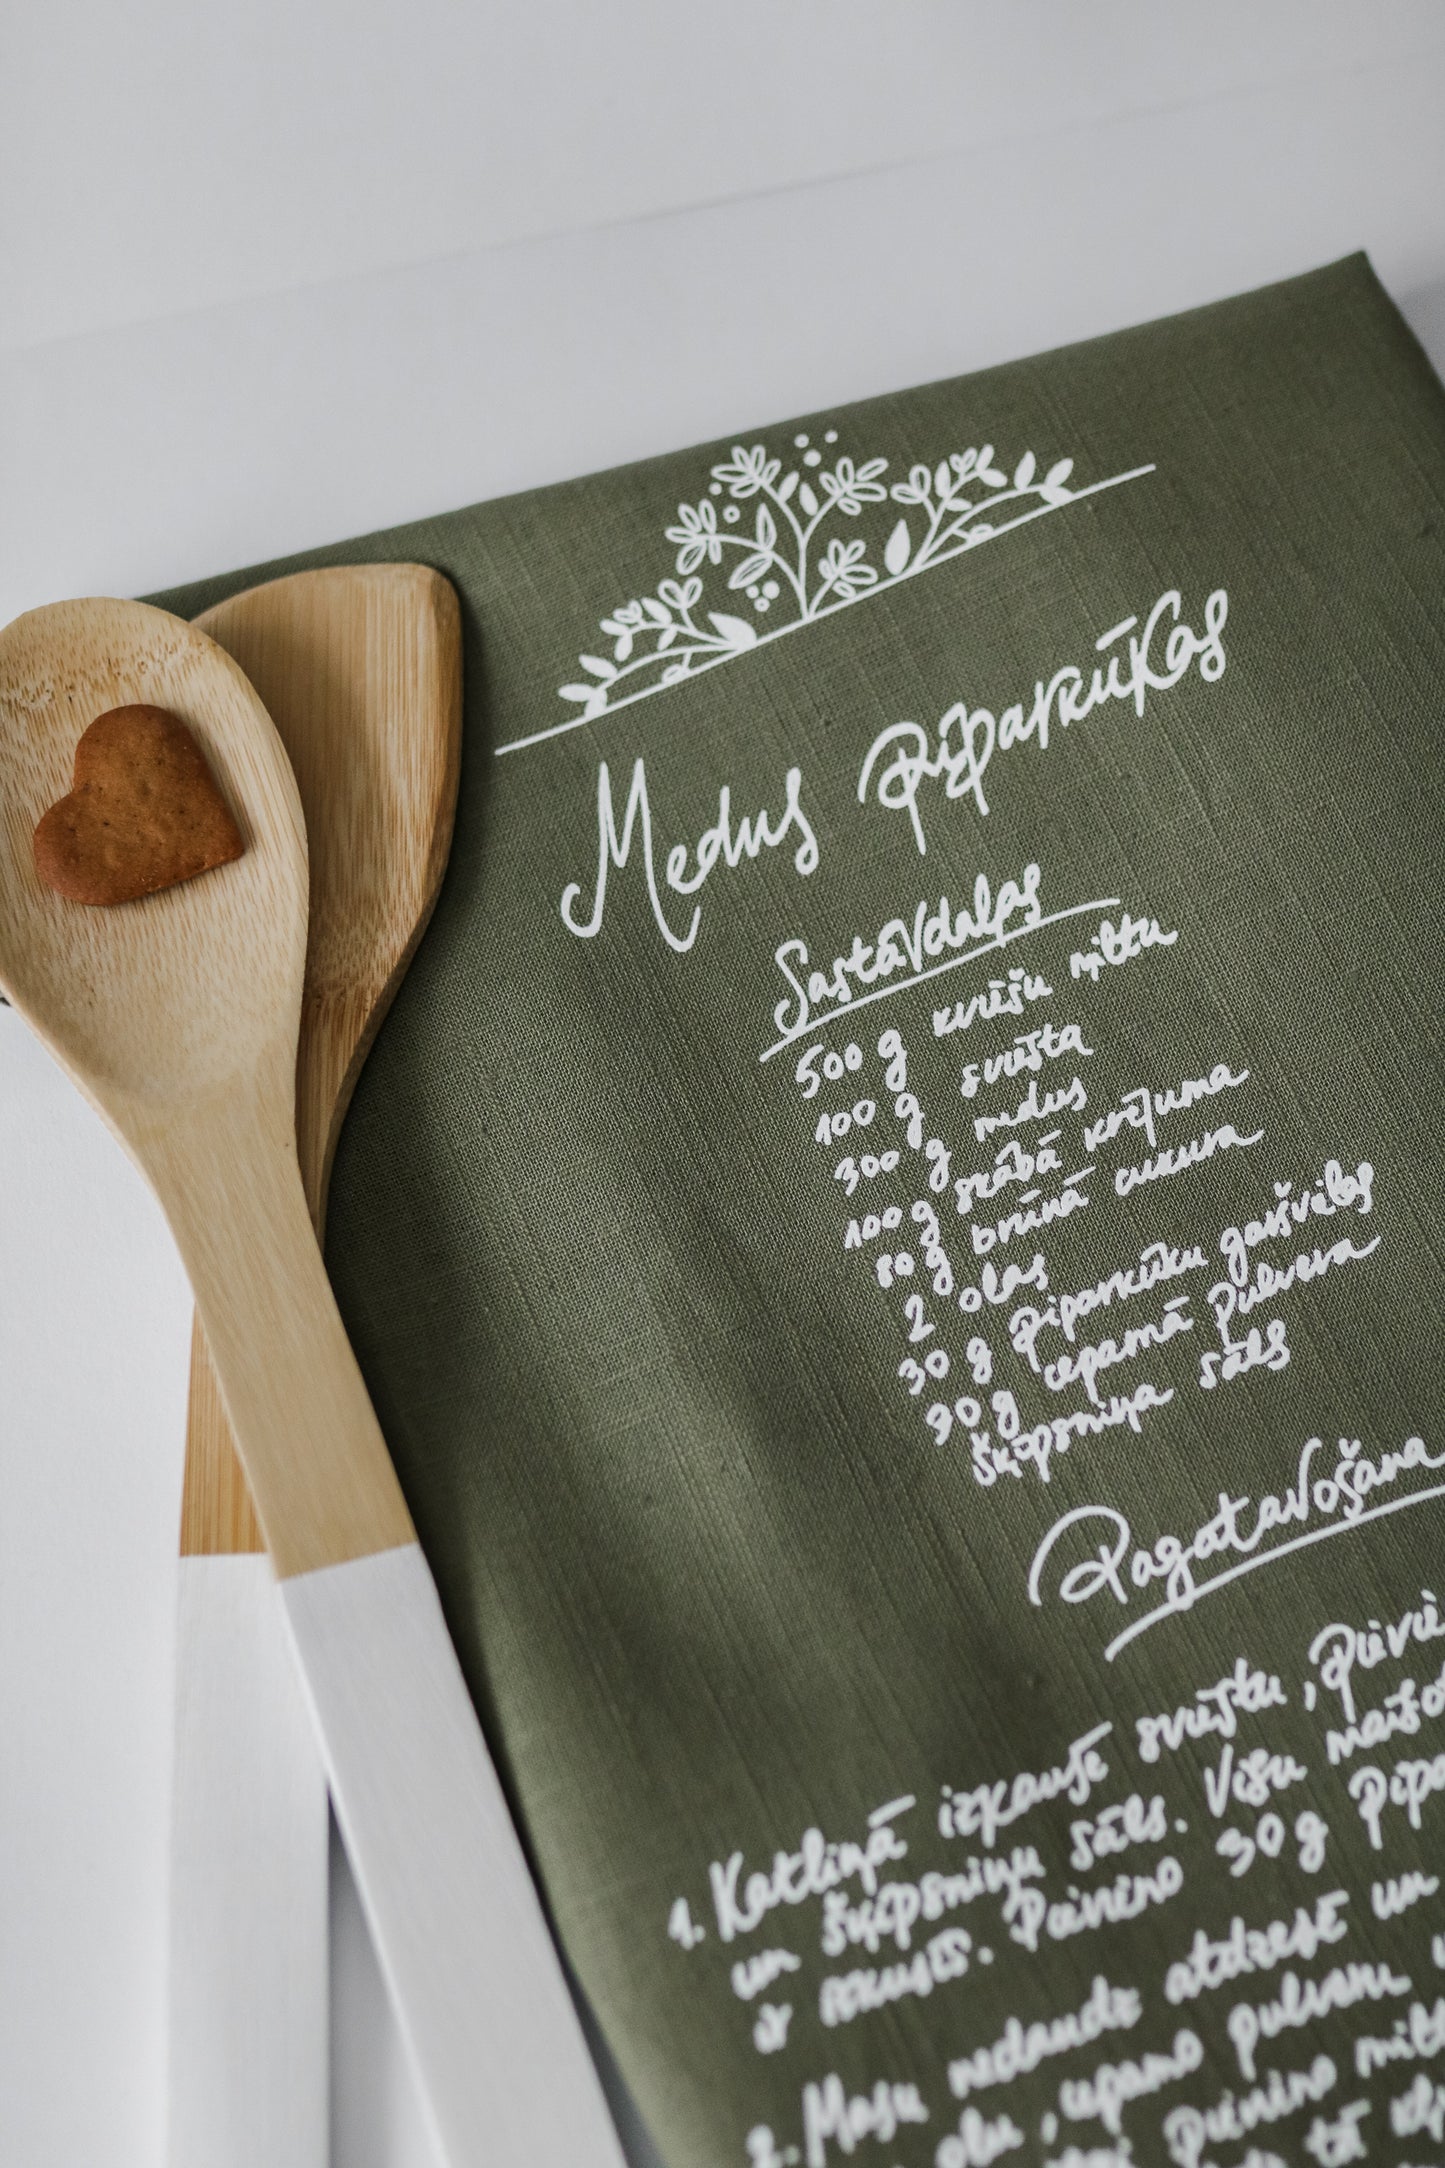 Medus Piparkūkas
Sastāvdaļas
500 g kviešu miltu
100 g sviesta
300 g medus
100 g skābā krējuma
80 g brūnā cukura
2 olas
30 g piparkūku garšvielas
90 g cepamā pulvera
Šķipsniņa sāls
Pagatavošana
1. Katliņā izkausē sviestu, pievie
un šķipsniņu sāls. Visu maiso
ir izkusis. Pievieno 30 g pipa
2. Masu nedaudz atdzesē un
olu, cepamo pulveru
pievieno milt